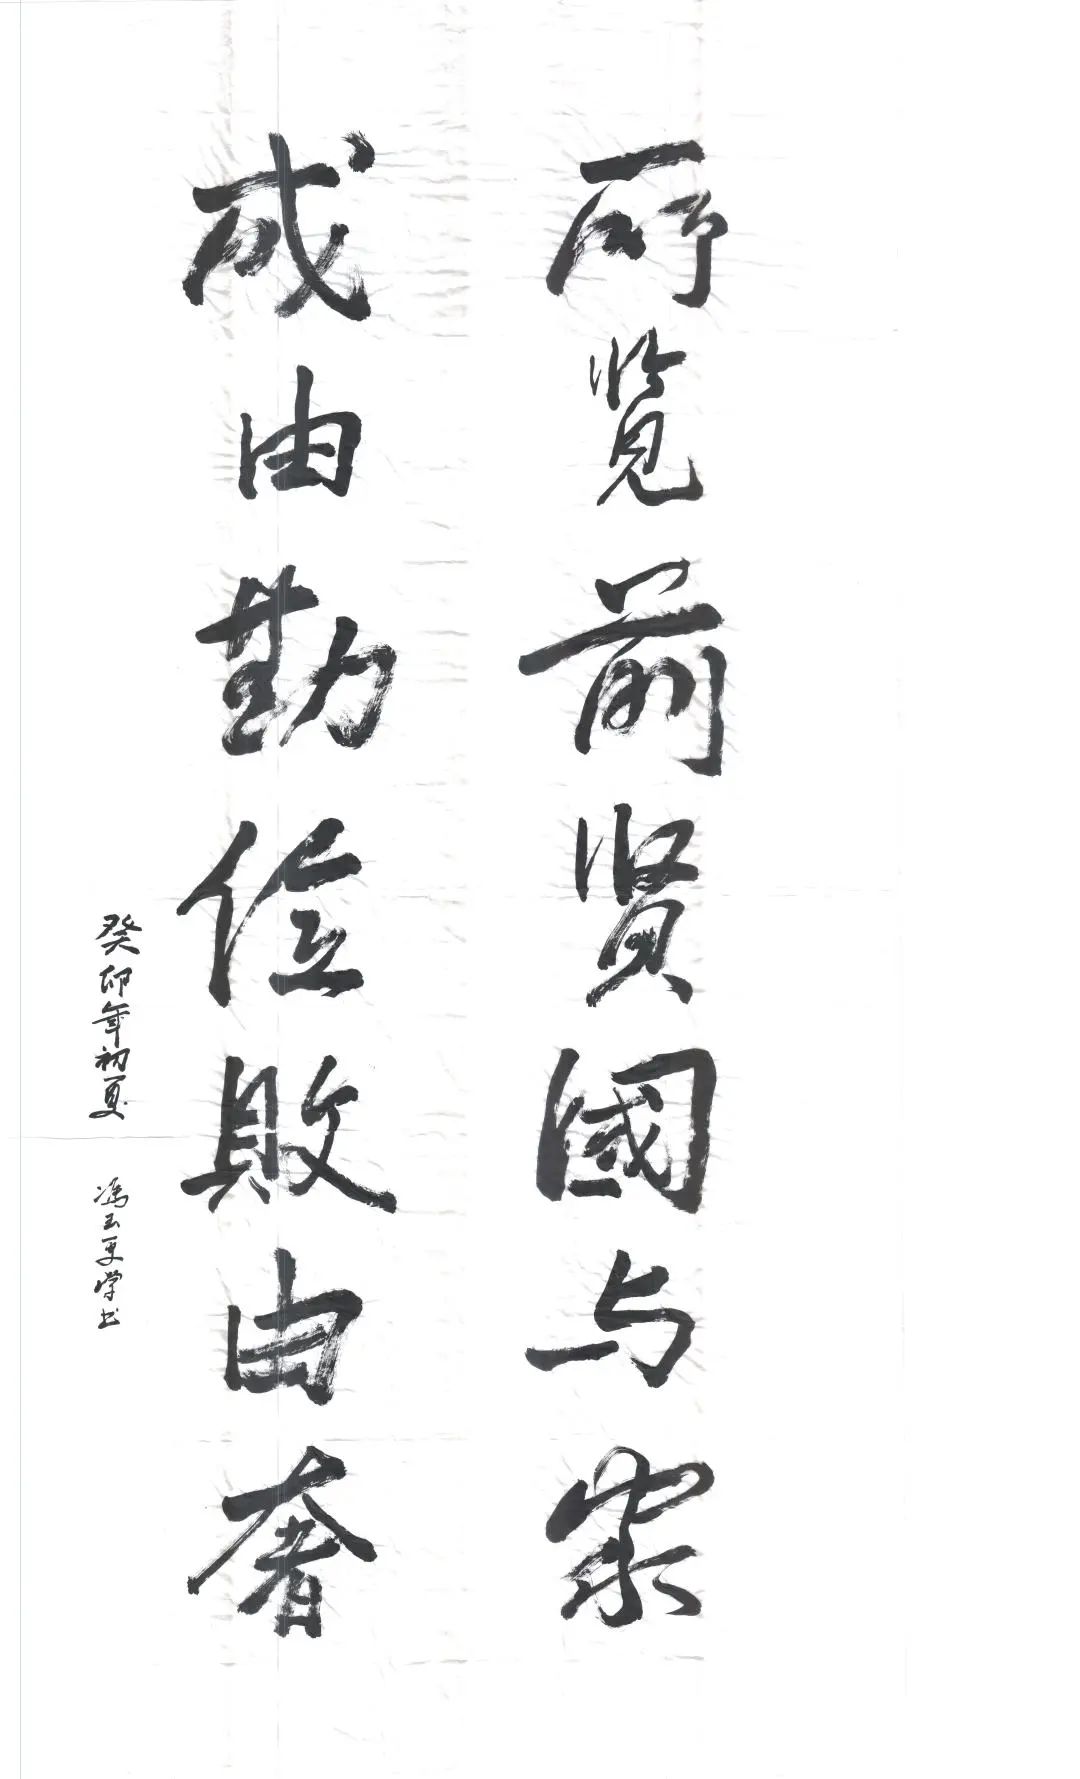 所览前贤國与家
成由勤俭敗由奢
癸卯年初夏 冯云更学书